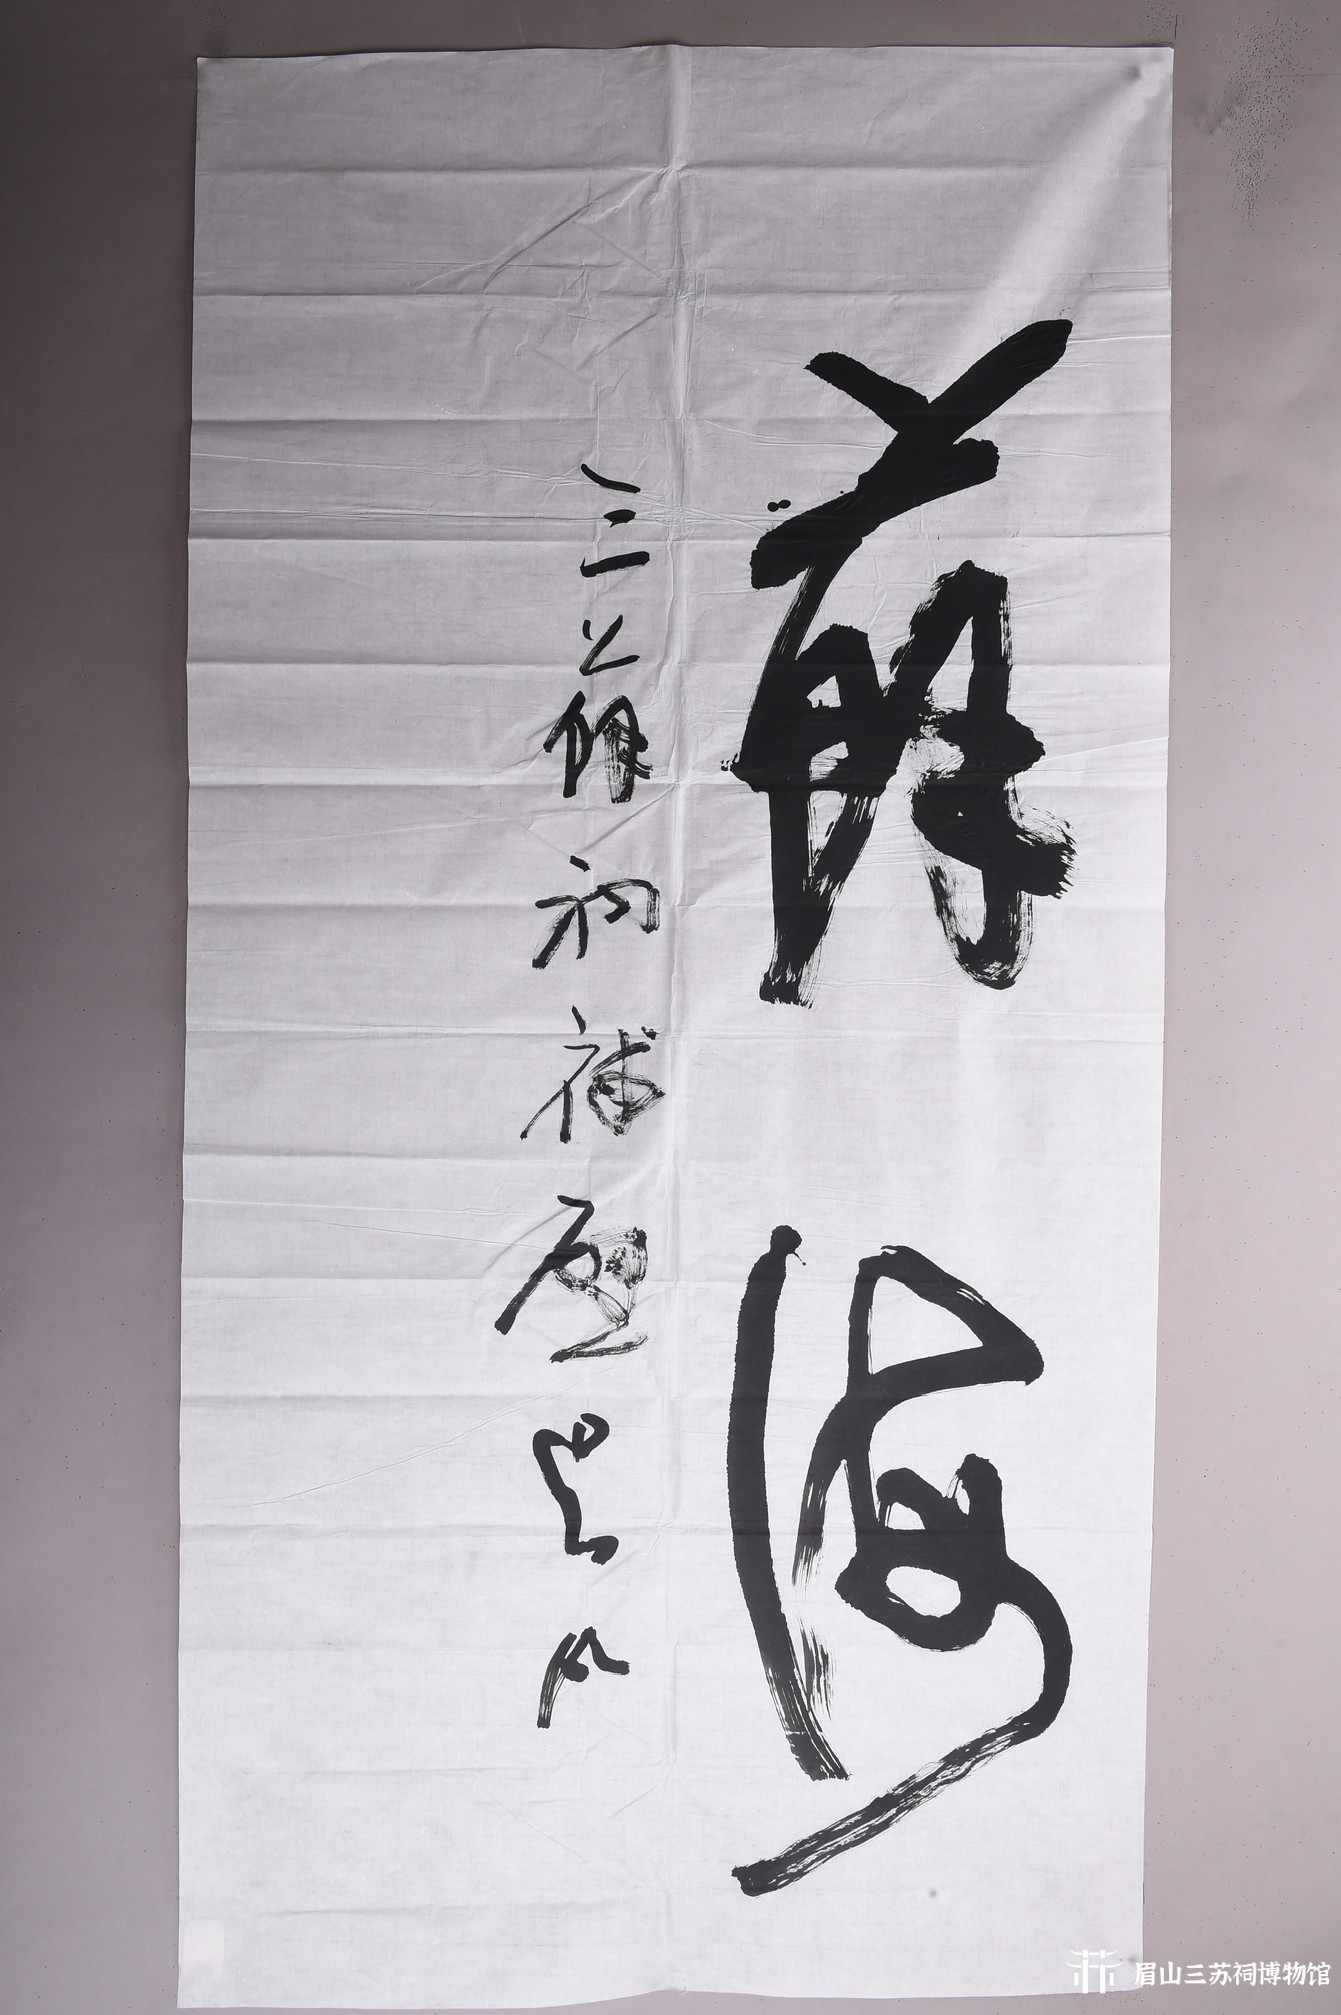 蘇海
三蘇祠補壁
眉山三苏祠博物馆